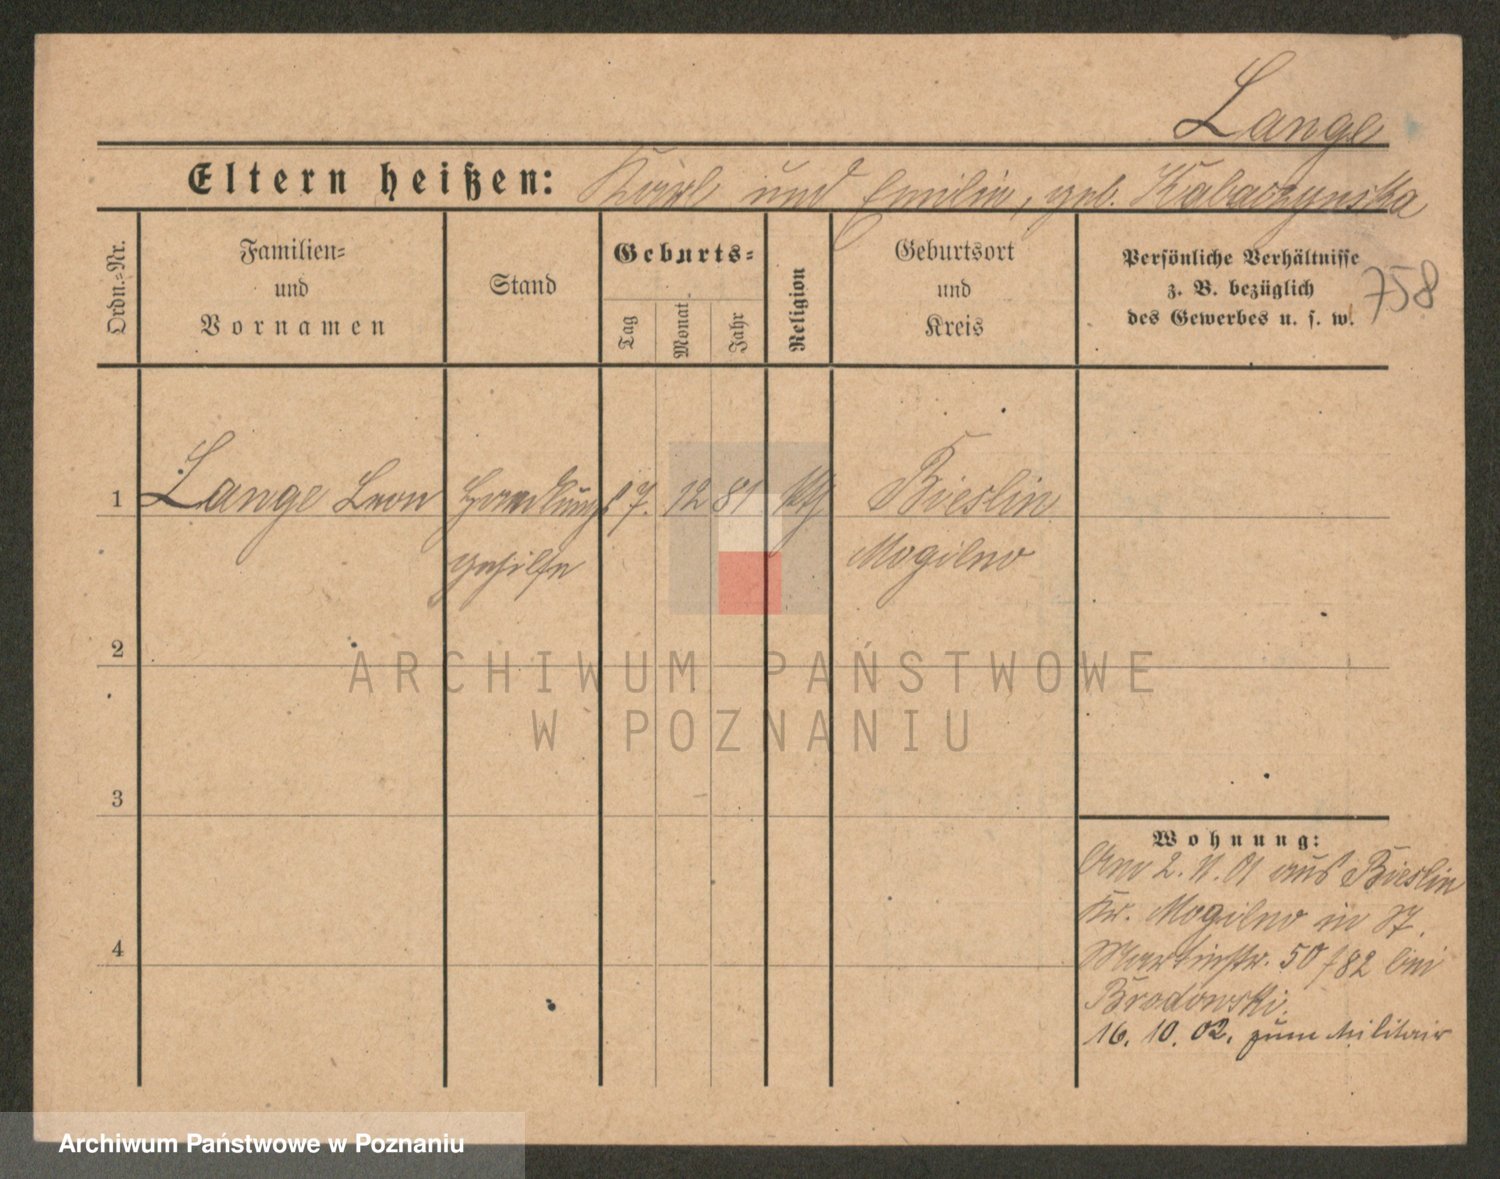 Lange
Eltern heißen: Karl und Emilie, geb. Kabaczynska
Ordn.=Nr.
Familien=
und
Vornamen
Stand
Geburts=
Tag
Monat
Jahr
Religion
Geburtsort
und
Kreis
Persönliche Verhältnisse
z. B. bezüglich
des Gewerbes u. s. w.
758
1 Lange Leon Handlungs 7. 12 81 Bieslin
gehilfe Mogilno
2
ARCHIWUM PAŃSTWOWE
W POZNANIU
3
Wohnung:
2. 11. 01 aus Bieslin
Kr. Mogilno in St.
Martinstr. 50/82 bei
Brodowski.
4
16. 10. 02. zum Militair
Archiwum Państwowe w Poznaniu